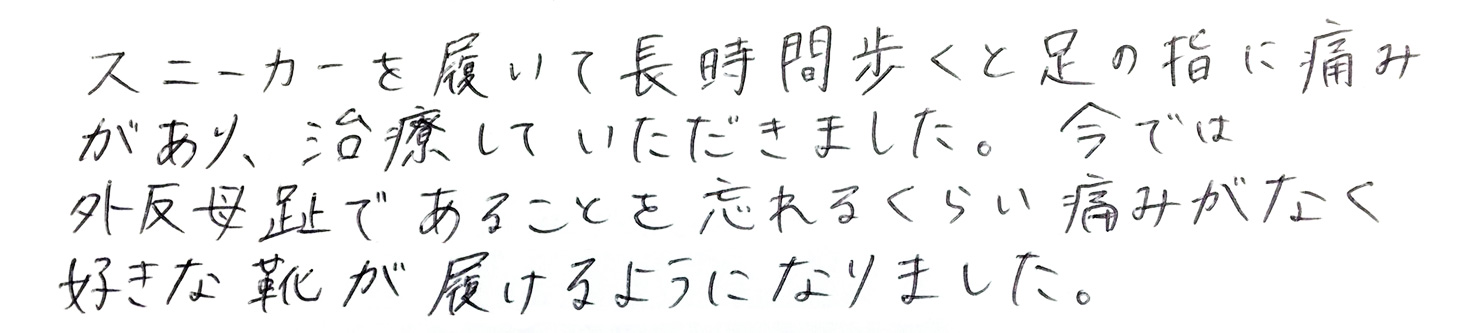 スニーカーを履いて長時間歩くと足の指に痛み
があり、治療していただきました。今では
外反母趾であることを忘れるくらい痛みがなく
好きな靴が履けるようになりました。